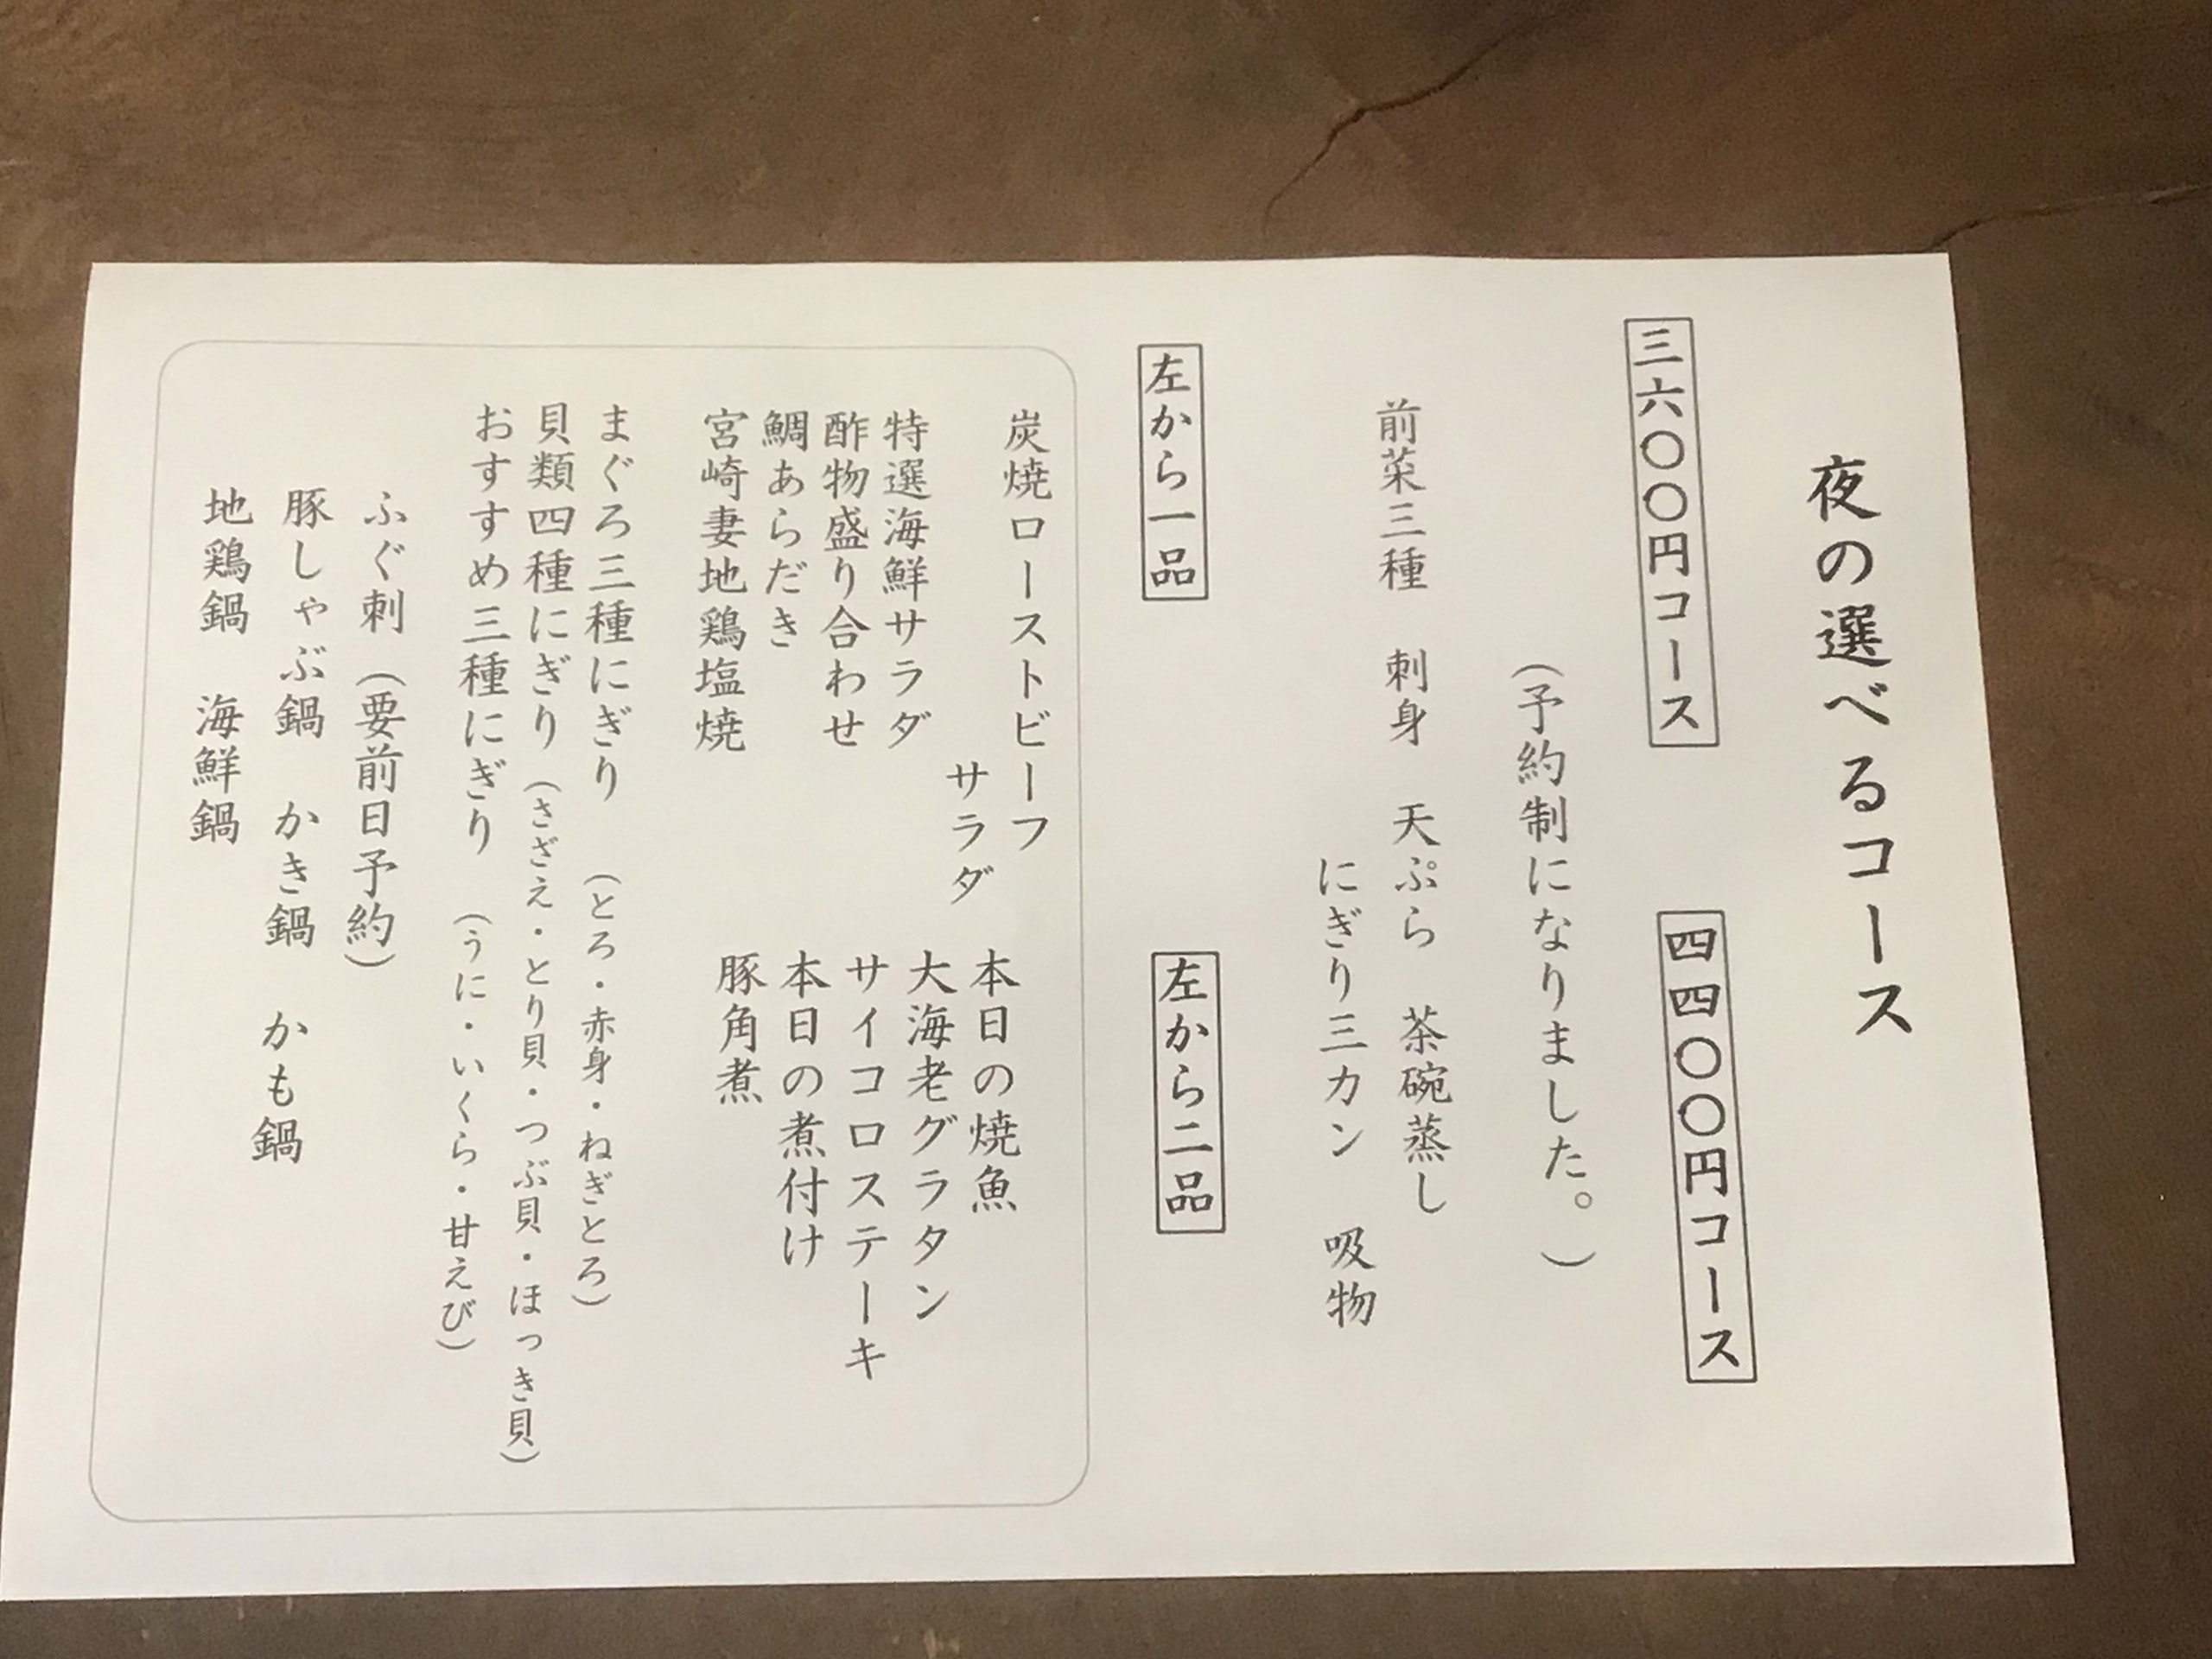 夜の選べるコース
三六〇〇円コース
四四〇〇円コース
(予約制になりました。)
前菜三種 刺身 天ぷら 茶碗蒸し
にぎり三カン 吸物
左から一品
左から二品
炭焼ローストビーフ
サラダ
特選海鮮サラダ
酢物盛り合わせ
鯛あらだき
宮崎妻地鶏塩焼
本日の焼魚
大海老グラタン
サイコロステーキ
本日の煮付け
豚角煮
まぐろ三種にぎり (とろ・赤身・ねぎとろ)
貝類四種にぎり (さざえ・とり貝・つぶ貝・ほっき貝)
おすすめ三種にぎり (うに・いくら・甘えび)
ふぐ刺 (要前日予約)
豚しゃぶ鍋 かき鍋 かも鍋
地鶏鍋 海鮮鍋